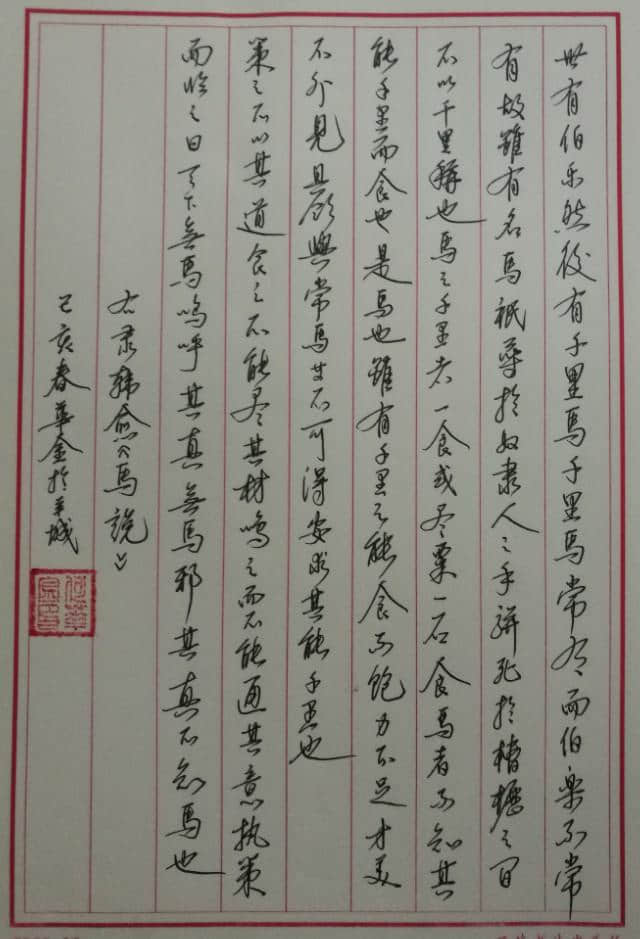 世有伯乐然後有千里馬千里馬常有而伯樂不常
有故雖有名馬祇辱於奴隶人之手骈死於槽櫪之间
不以千里稱也馬之千里者一食或尽粟一石食馬者不知其
能千里而食也是馬也雖有千里之能食不飽力不足才美
不外見且欲與常馬等不可得安求其能千里也
策之不以其道食之不能尽其材鳴之而不能通其意执策
而临之曰天下無馬呜呼其真無馬邪其真不知馬也
右录韩愈馬説
己亥春華金於羊城